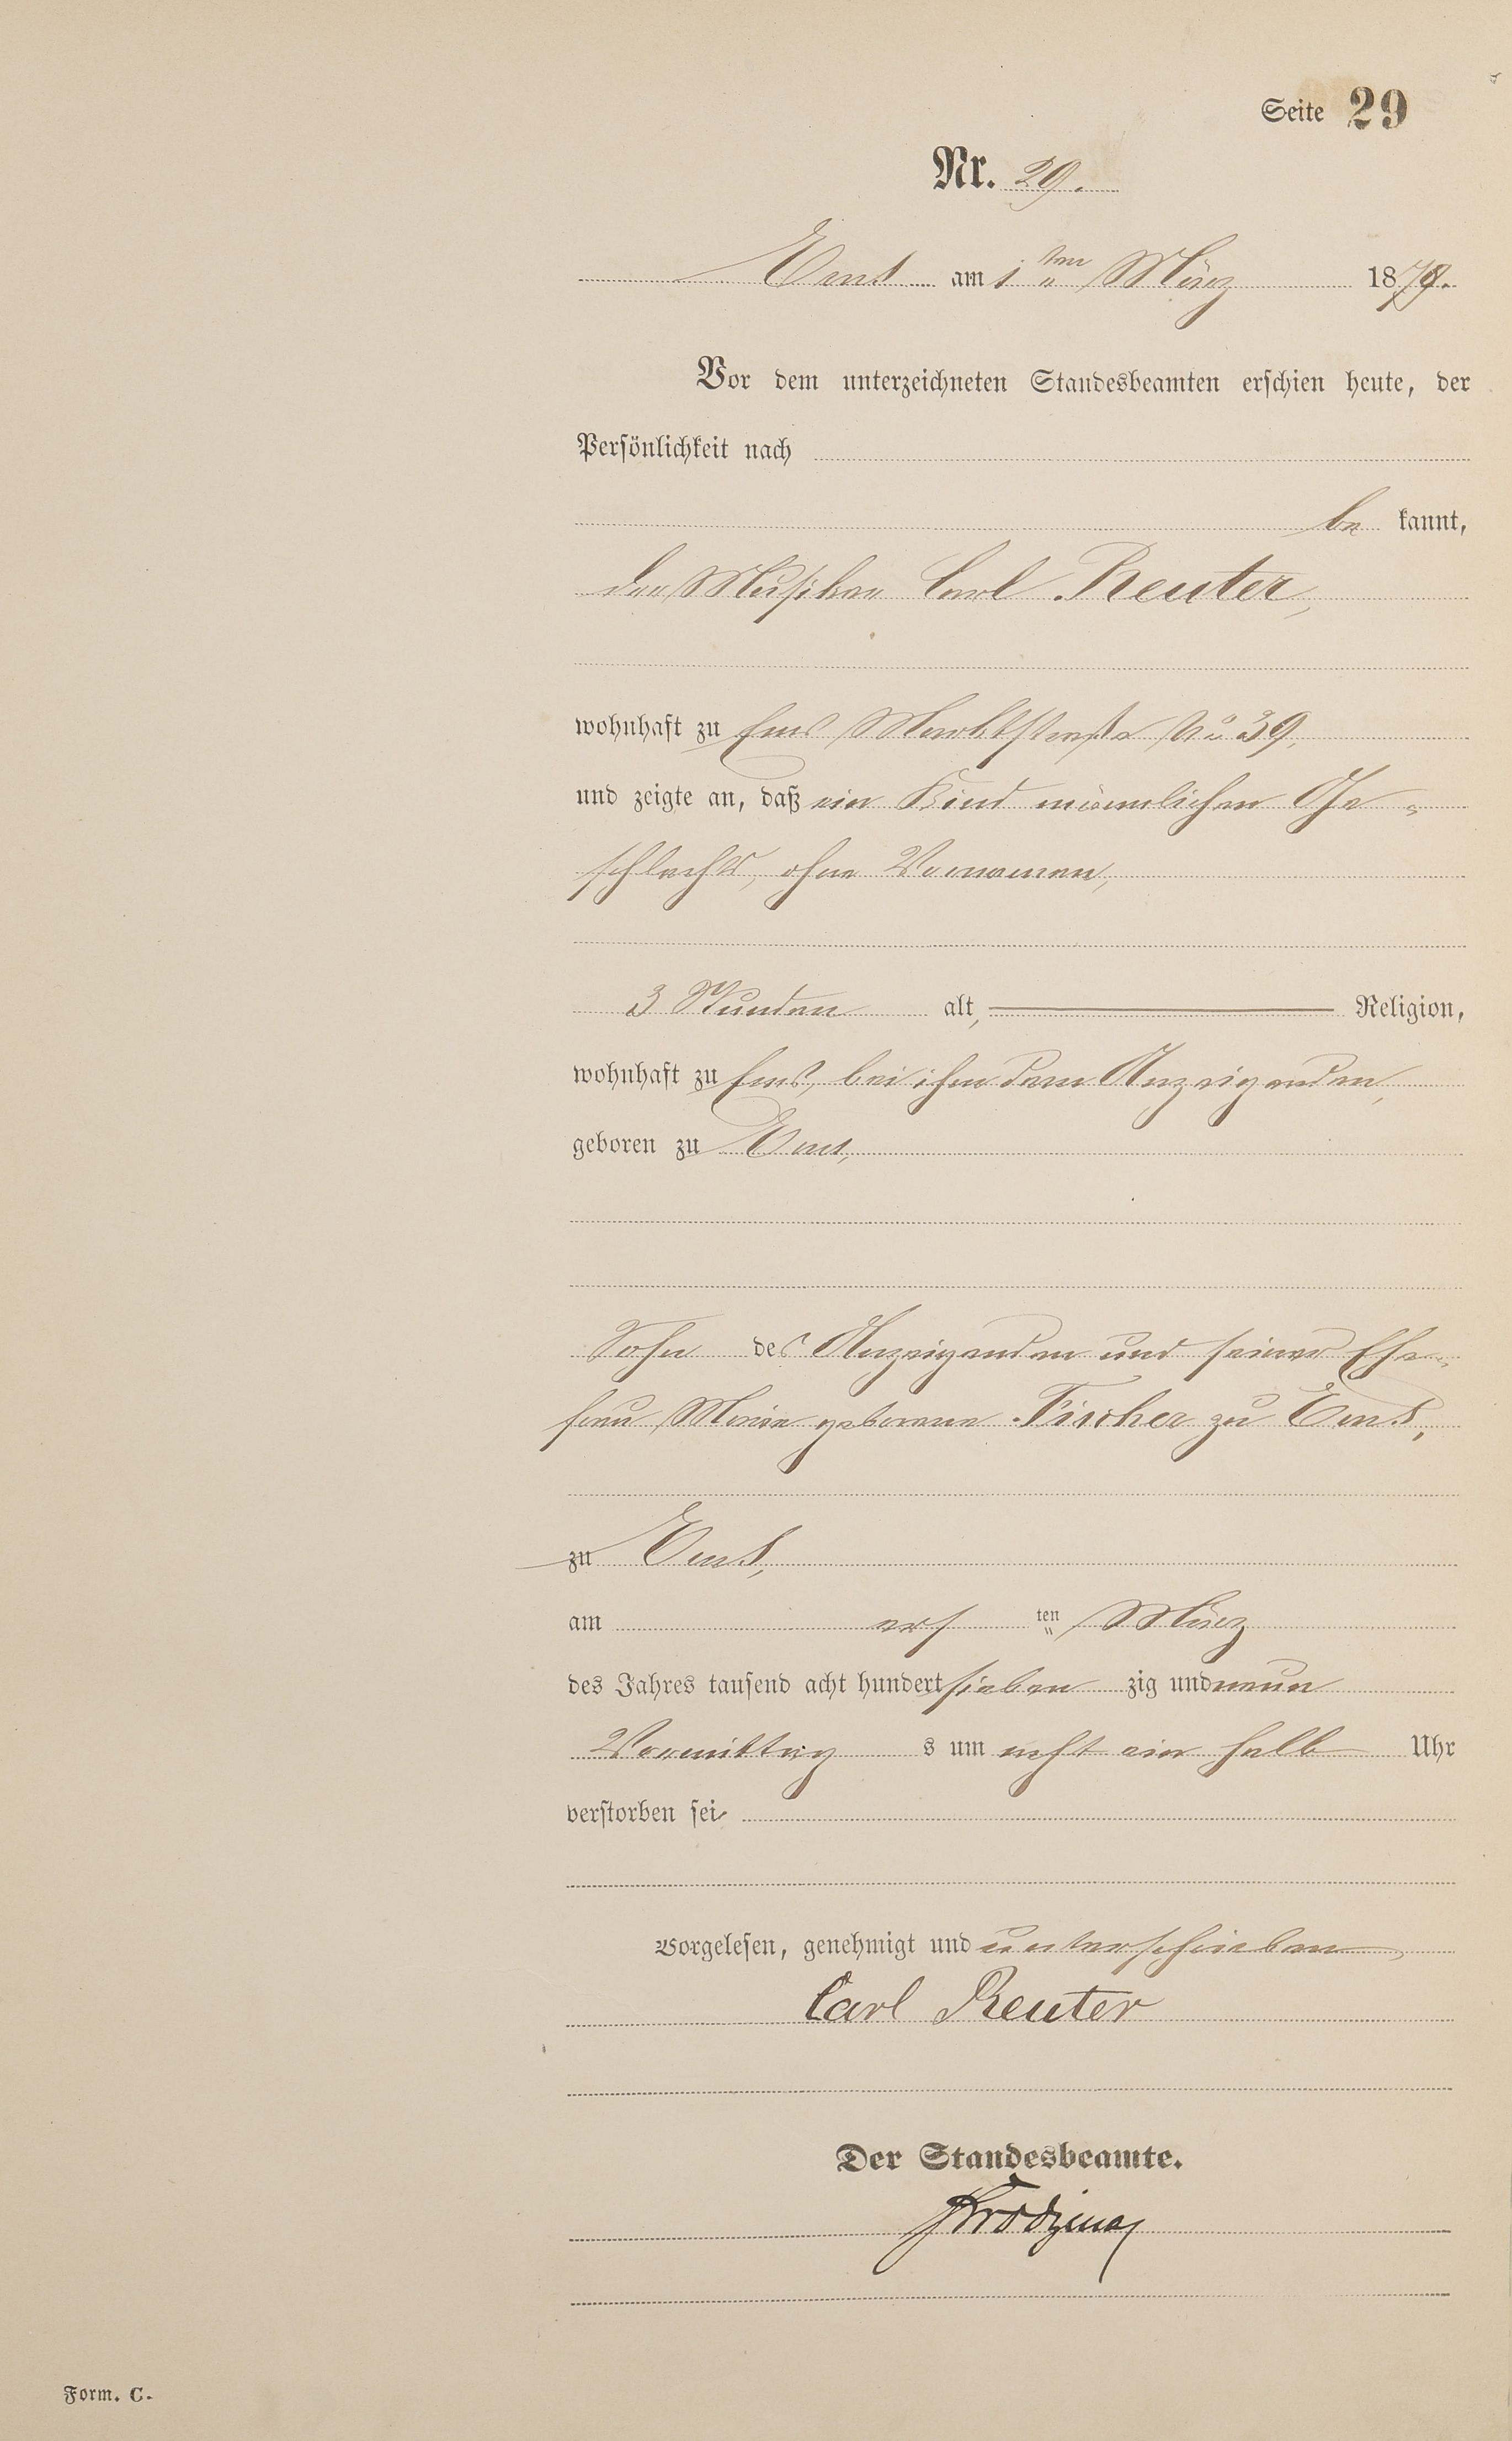 Seite 29
Nr. 29.
Ems am 1ten März 1879.
Vor dem unterzeichneten Standesbeamten erschien heute, der
Persönlichkeit nach
be kannt,
der Musiker Carl Reuter,
wohnhaft zu Ems Marktstraße No 39,
und zeigte an, daß ein Kind männlichen Ge-
schlechts, ohne Vornamen,
3 Stunden alt, Religion,
wohnhaft zu Ems, bei ihm dem Anzeigenden,
geboren zu Ems,
Sohn des Anzeigenden und seiner Ehe-
frau, Maria geborene Fischer zu Ems,
zu Ems,
am ersten März
des Jahres tausend acht hundert sieben zig und neun
Vormittag s um acht ein halb Uhr
verstorben sei
Vorgelesen, genehmigt und unterschrieben,
Carl Reuter
Der Standesbeamte.
Form. C.